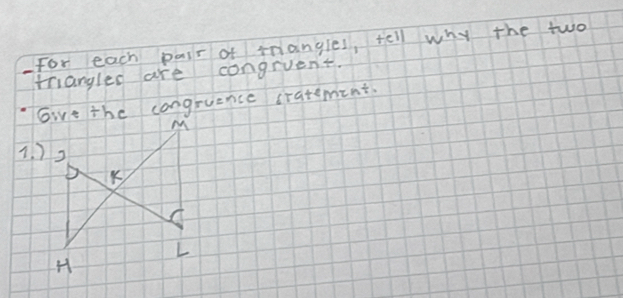 -For each pair of triangles, tell why the two
triangles are congruent.
• Give the congruence statement.
M
1.) J
K
L
H